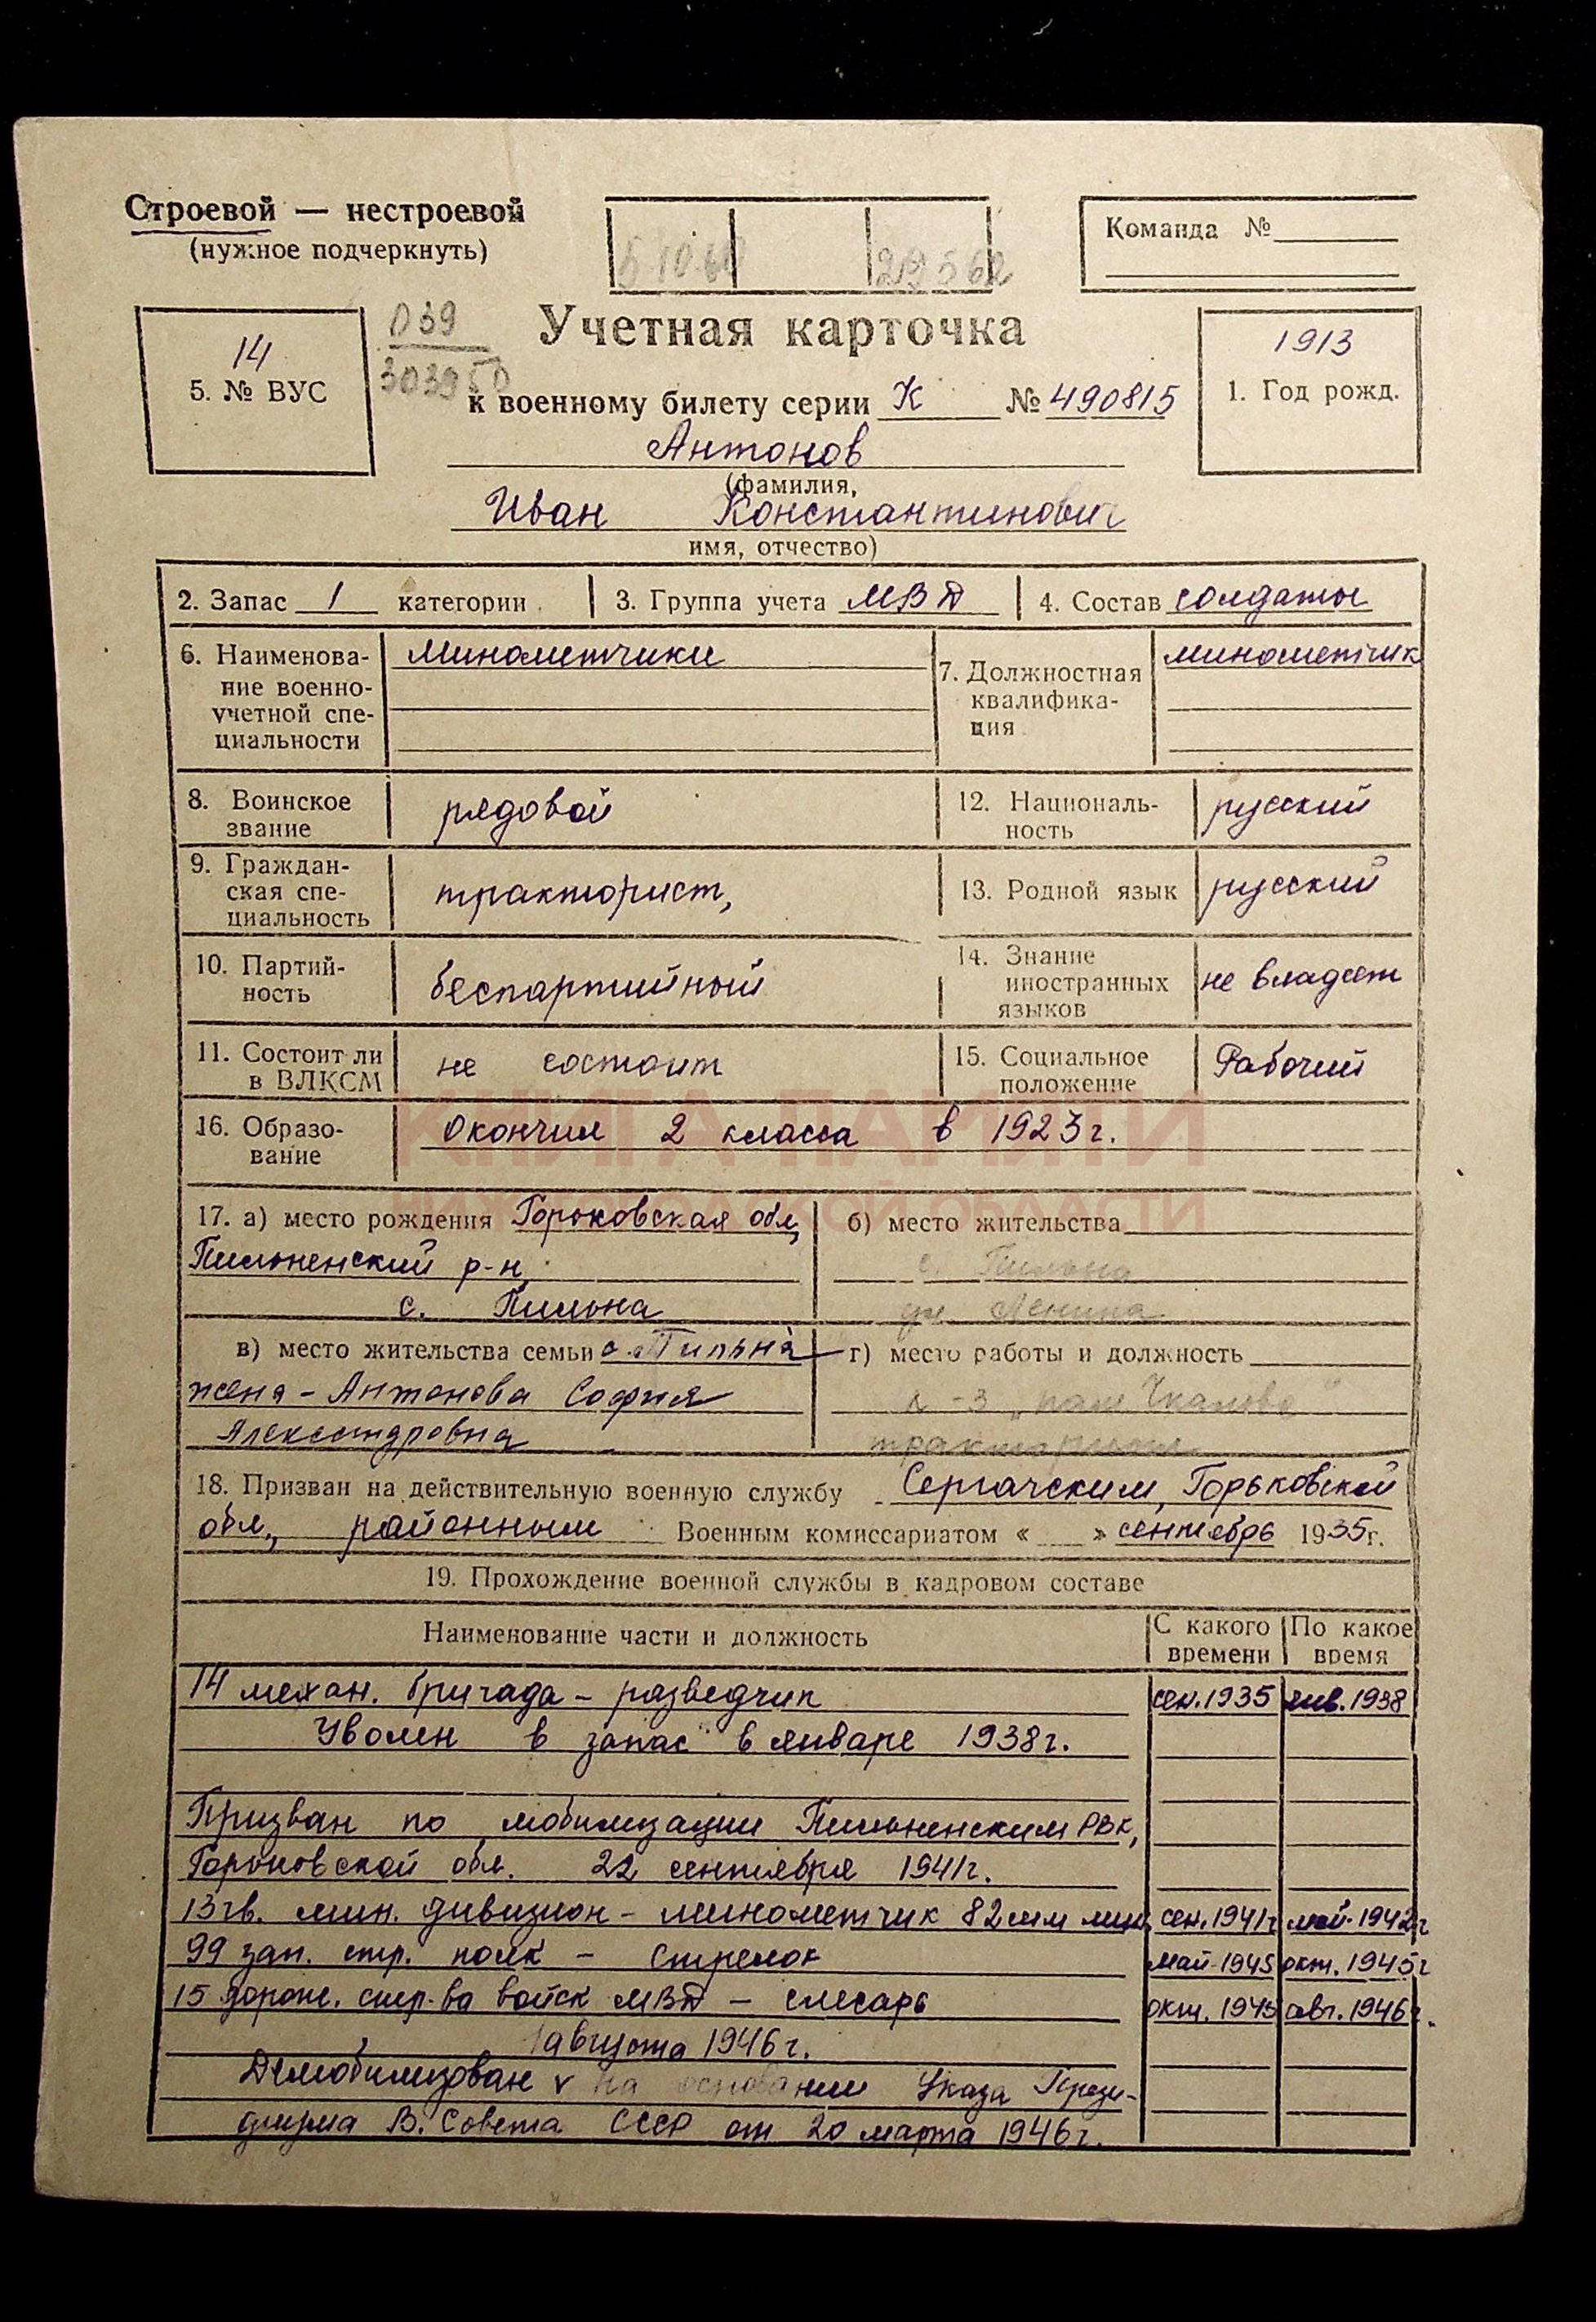 Строевой — нестроевой
(нужное подчеркнуть)
5.10.60
29562
Команда №
14
5. № ВУС
039
303950
Учетная карточка
к военному билету серии К № 490815
1913
1. Год рожд.
Антонов
(фамилия,
Иван Константинович
имя, отчество)
2. Запас 1 категории
3. Группа учета МВД
4. Состав солдаты
6. Наименова-
ние военно-
учетной спе-
циальности
Минометчики
7. Должностная
квалифика-
ция
минометчик
8. Воинское
звание
рядовой
12. Националь-
ность
русский
9. Граждан-
ская спе-
циальность
тракторист,
13. Родной язык
русский
10. Партий-
ность
беспартийный
14. Знание
иностранных
языков
не владеет
11. Состоит ли
в ВЛКСМ
не состоит
15. Социальное
положение
Рабочий
КНИГА ПАМЯТИ
ОБЛАСТИ
16. Образо-
вание
Окончил 2 класса в 1923 г.
17. а) место рождения Горьковская обл,
Пильненский р-н,
с. Пильна
б) место жительства
с. Пильна
ул. Ленина
в) место жительства семьи с. Пильна
жена - Антонова София
Александровна
г) место работы и должность
к-з „пам Чкалова"
тракторист
18. Призван на действительную военную службу Сергачским, Горьковской
обл., районным Военным комиссариатом « » сентябрь 1935 г.
19. Прохождение военной службы в кадровом составе
Наименование части и должность
С какого
времени
По какое
время
14 механ. бригада - разведчик сен. 1935 янв. 1938
Уволен в запас в январе 1938 г.
Призван по мобилизации Пильненским РВК,
Горьковской обл. 22 сентября 1941 г.
13 гв. мин. дивизион - минометчик 82 мм мин. сен. 1941 г май 1942 г
99 зап. стр. полк - стрелок май 1945 окт. 1945 г
15 дорож. стр-ва войск МВД - слесарь окт. 1945 авг. 1946 г.
августа 1946 г.
Демобилизован v на основании Указа Прези-
диума В. Совета СССР от 20 марта 1946 г.